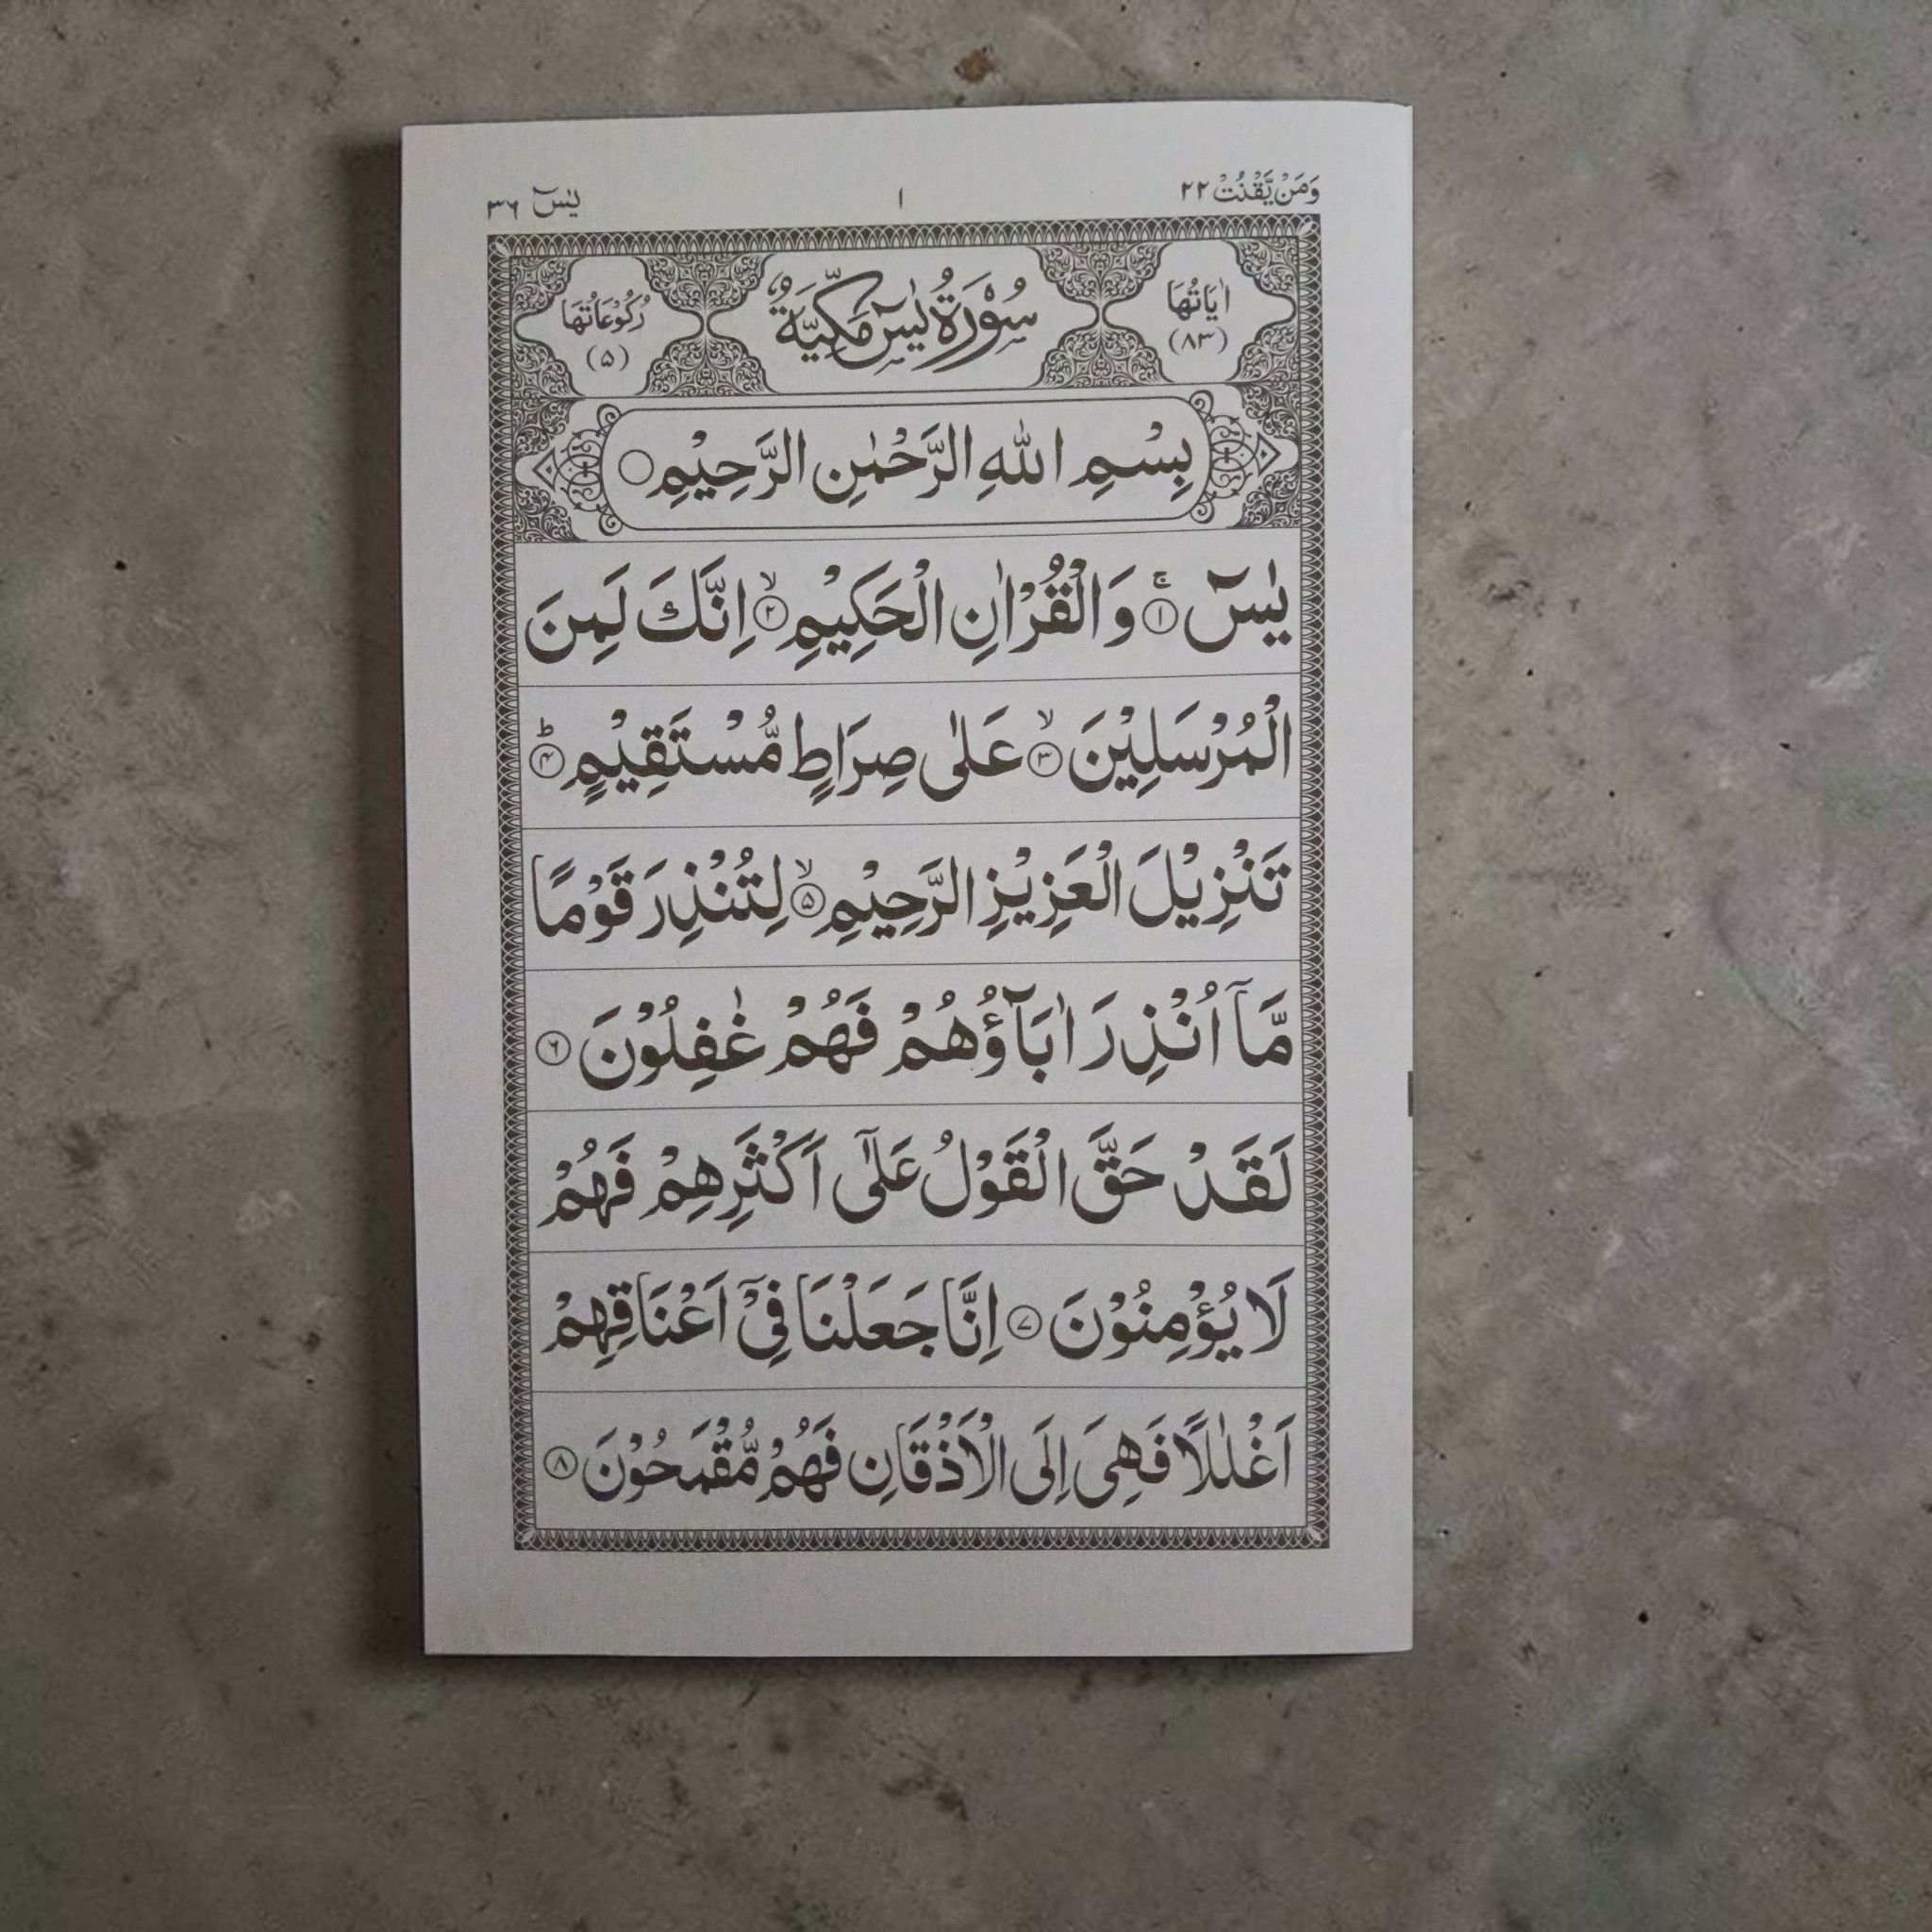 وَمَنْ يَّقْنُتْ ٢٢ ١ يٰسٓ ٣٦
اٰيَاتُهَا (٨٣) سُوْرَةُ يٰسٓ مَكِّيَّةٌ رُكُوْعَاتُهَا (٥)
بِسْمِ اللّٰهِ الرَّحْمٰنِ الرَّحِيْمِ ○
يٰسٓ ۚ ﴿١﴾ وَالْقُرْاٰنِ الْحَكِيْمِ ۙ ﴿٢﴾ اِنَّكَ لَمِنَ
الْمُرْسَلِيْنَ ۙ ﴿٣﴾ عَلٰى صِرَاطٍ مُّسْتَقِيْمٍ ؕ ﴿٤﴾
تَنْزِيْلَ الْعَزِيْزِ الرَّحِيْمِ ۙ ﴿٥﴾ لِتُنْذِرَ قَوْمًا
مَّاۤ اُنْذِرَ اٰبَآؤُهُمْ فَهُمْ غٰفِلُوْنَ ﴿٦﴾
لَقَدْ حَقَّ الْقَوْلُ عَلٰۤى اَكْثَرِهِمْ فَهُمْ
لَا يُؤْمِنُوْنَ ﴿٧﴾ اِنَّا جَعَلْنَا فِيْۤ اَعْنَاقِهِمْ
اَغْلٰلًا فَهِىَ اِلَى الْاَذْقَانِ فَهُمْ مُّقْمَحُوْنَ ﴿٨﴾